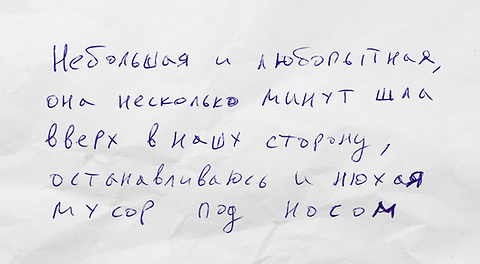 Небольшая и любопытная,
она несколько минут шла
вверх в нашу сторону,
останавливаюсь и нюхая
мусор под носом